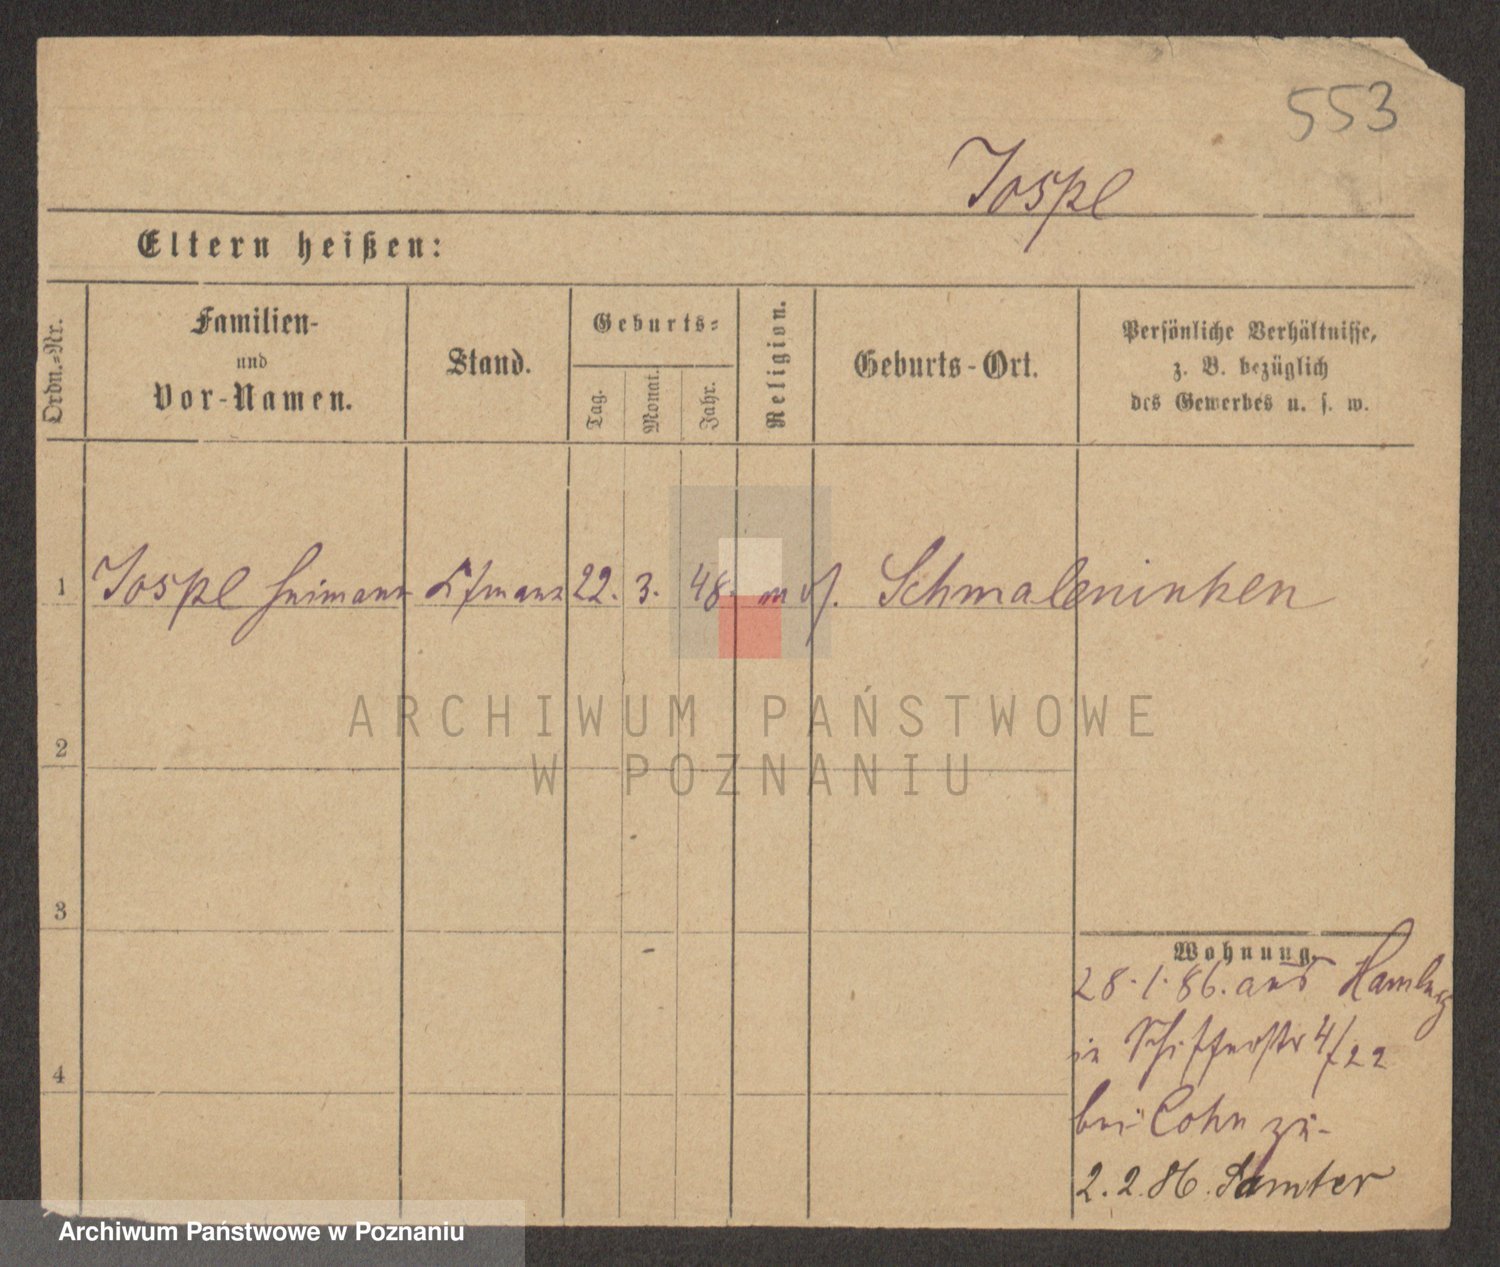 553
Jospe
Eltern heißen:
Ordn.-Nr.
Familien-
und
Vor-Namen.
Stand.
Geburts-
Tag.
Monat.
Jahr.
Religion.
Geburts-Ort.
Persönliche Verhältnisse,
z. B. bezüglich
des Gewerbes u. s. w.
1 Jospe Heimann Kfmann 22. 3. 48. mos. Schmaleninken
2
3
4
Wohnung.
28.1.86. aus Hamburg
in Schifferstr 4/22
bei Cohn zu-
2.2.86. Samter
ARCHIWUM PAŃSTWOWE
W POZNANIU
Archiwum Państwowe w Poznaniu